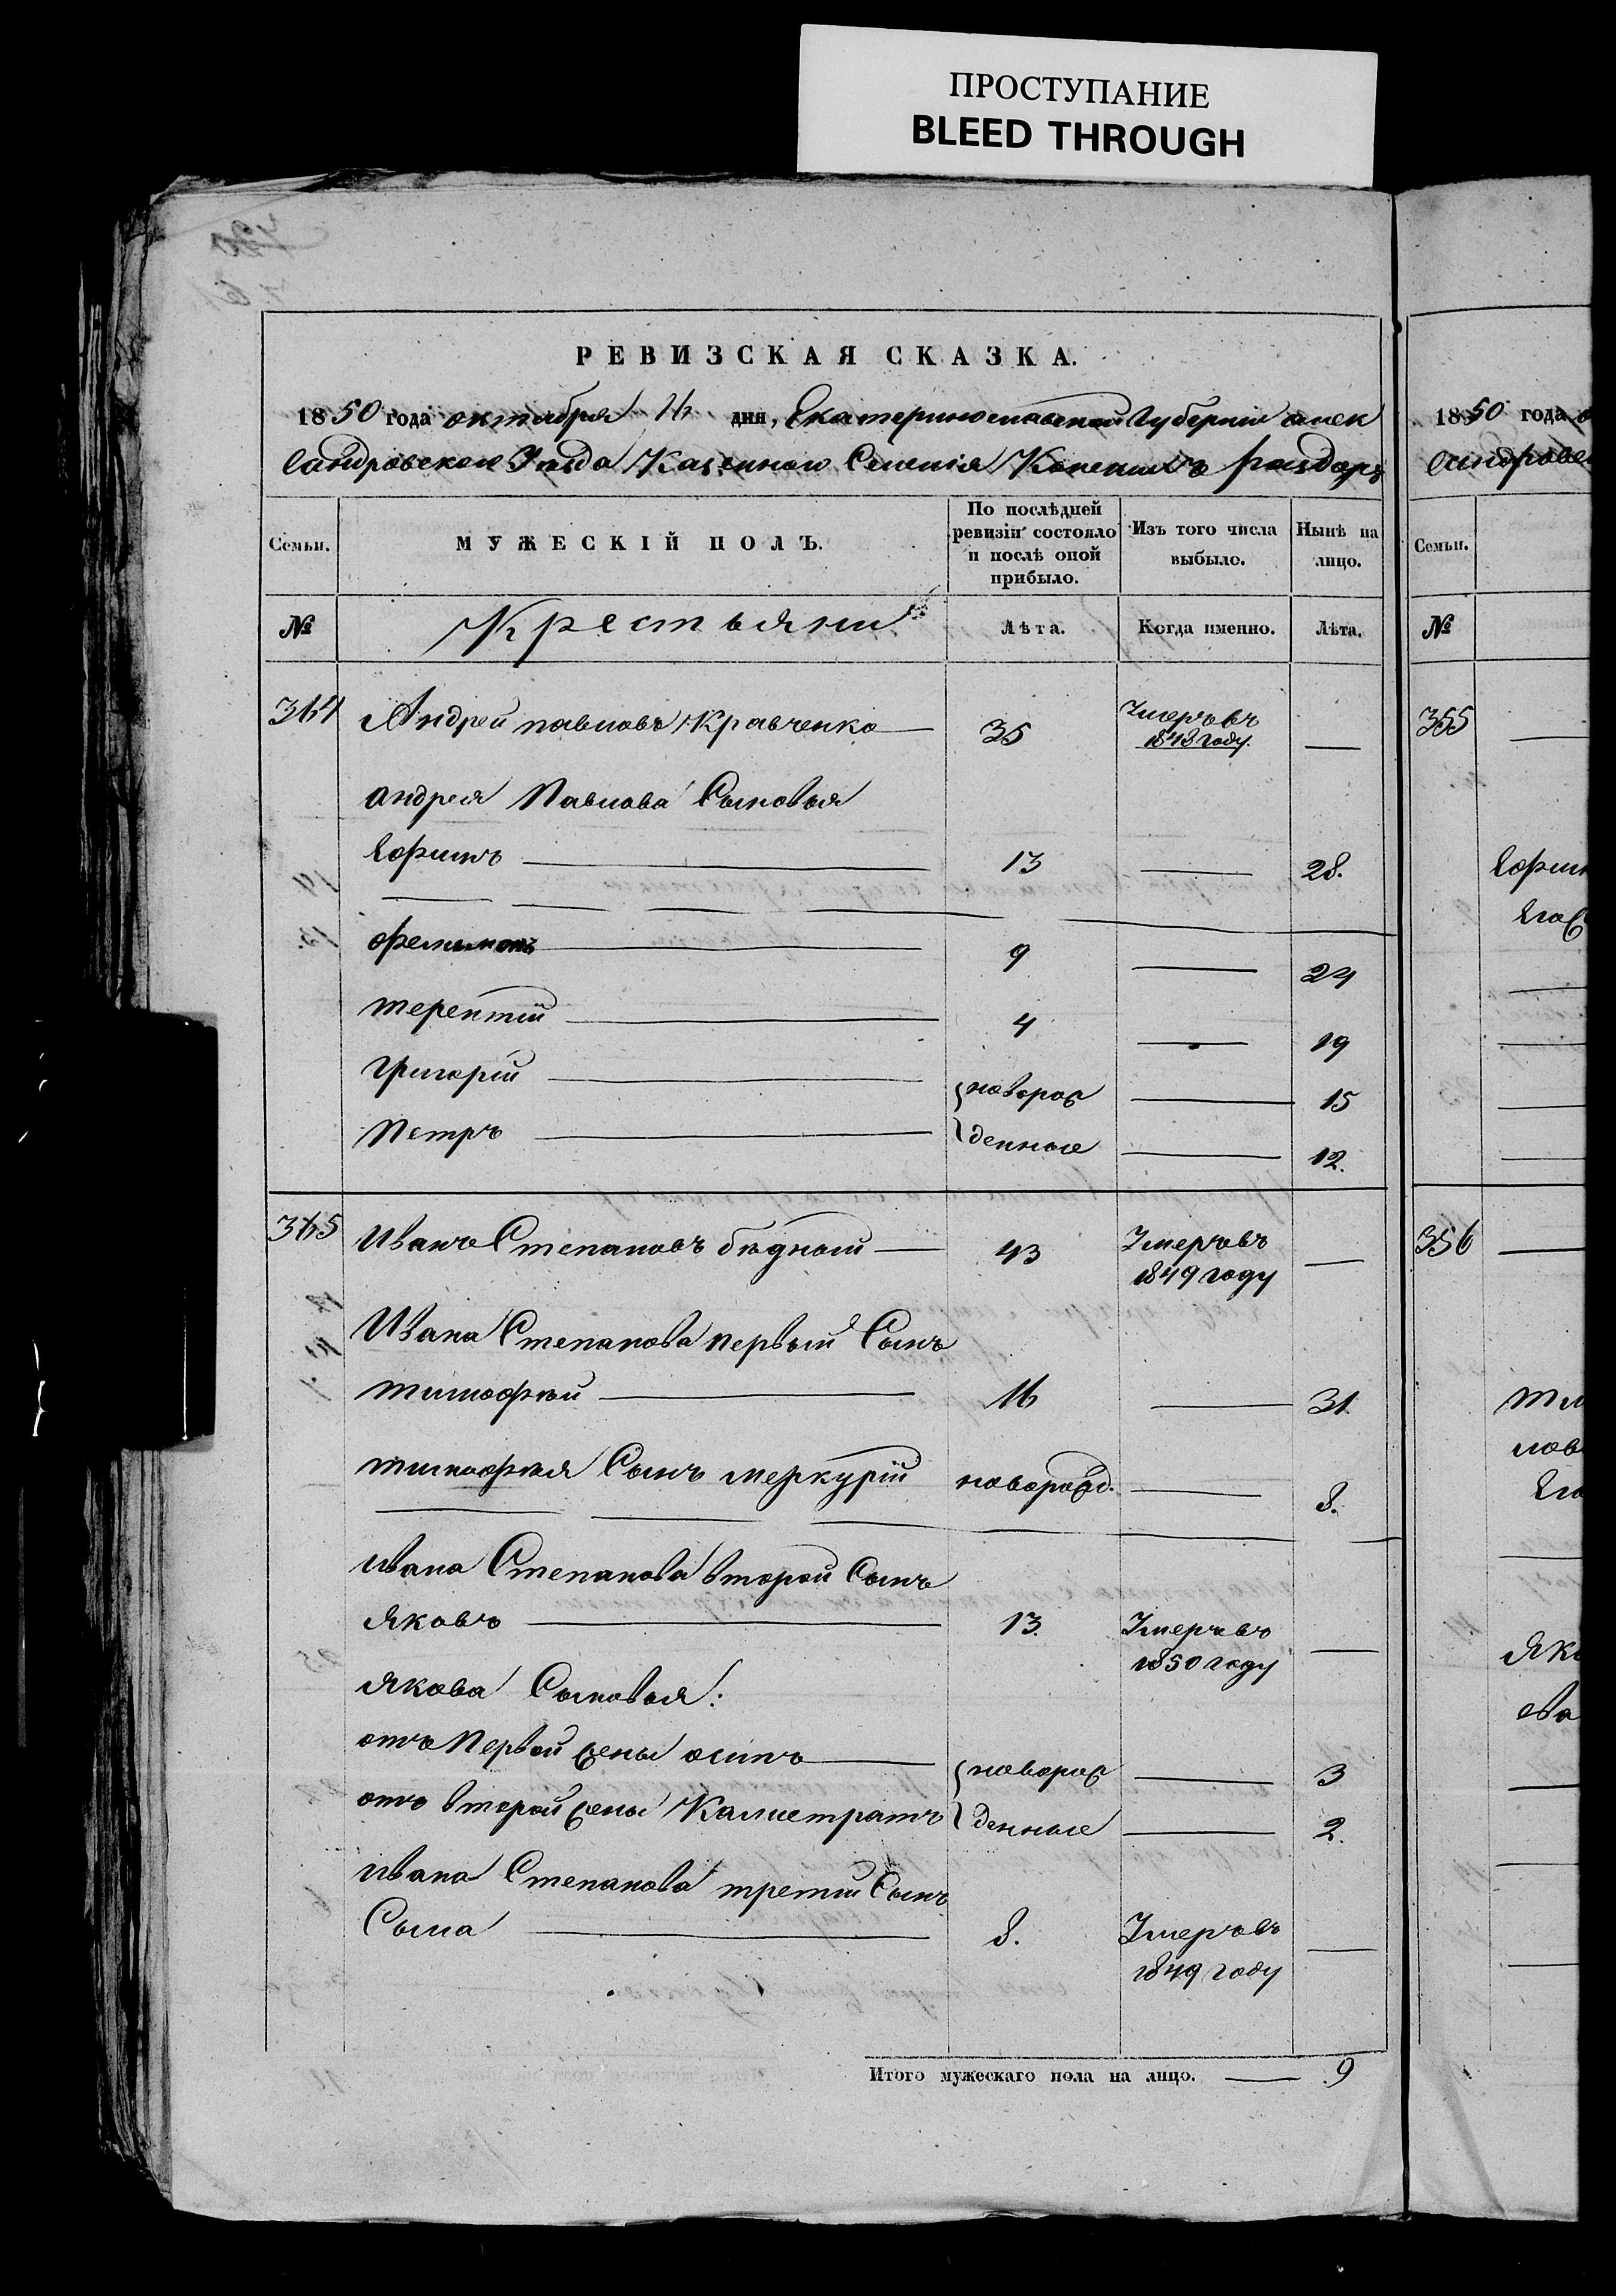 ПРОСТУПАНИЕ
BLEED THROUGH
РЕВИЗСКАЯ СКАЗКА.
1850 года октября 16 дня, Екатеринославской Губерніи алек
сандровскаго Уѣзда Казеннаго Селенія Конскихъ раздоръ
Семьи.
МУЖЕСКІЙ ПОЛЪ.
По послѣдней ревизіи состояло и послѣ оной прибыло.
Изъ того числа выбыло.
Нынѣ на лицо.
№ Крестьяни Лѣта. Когда именно. Лѣта.
364 Андрей павловъ Кравченко 35 Умеръ въ 1848 году.
андрея Павлова Сыновья
ефимъ 13 28.
филимонъ 9 24
терентій 4 19
григорій новорож 15
Петръ денные 12.
365 Иванъ Степановъ бѣдный 43 Умеръ въ 1849 году
Ивана Степанова первый Сынъ
тимофѣй 16 31.
тимофѣя Сынъ меркурій новорожд. 8.
ивана Степанова второй Сынъ
яковъ 13. Умеръ въ 1850 году
якова Сыновья:
отъ Первой жены осипъ новорож 3
отъ второй жены Калистратъ денные 2.
ивана Степанова третій Сынъ
Сыла 8. Умеръ въ 1849 году
Итого мужескаго пола на лицо. 9
1850 года
сандровск
Семьи.
№
355
356